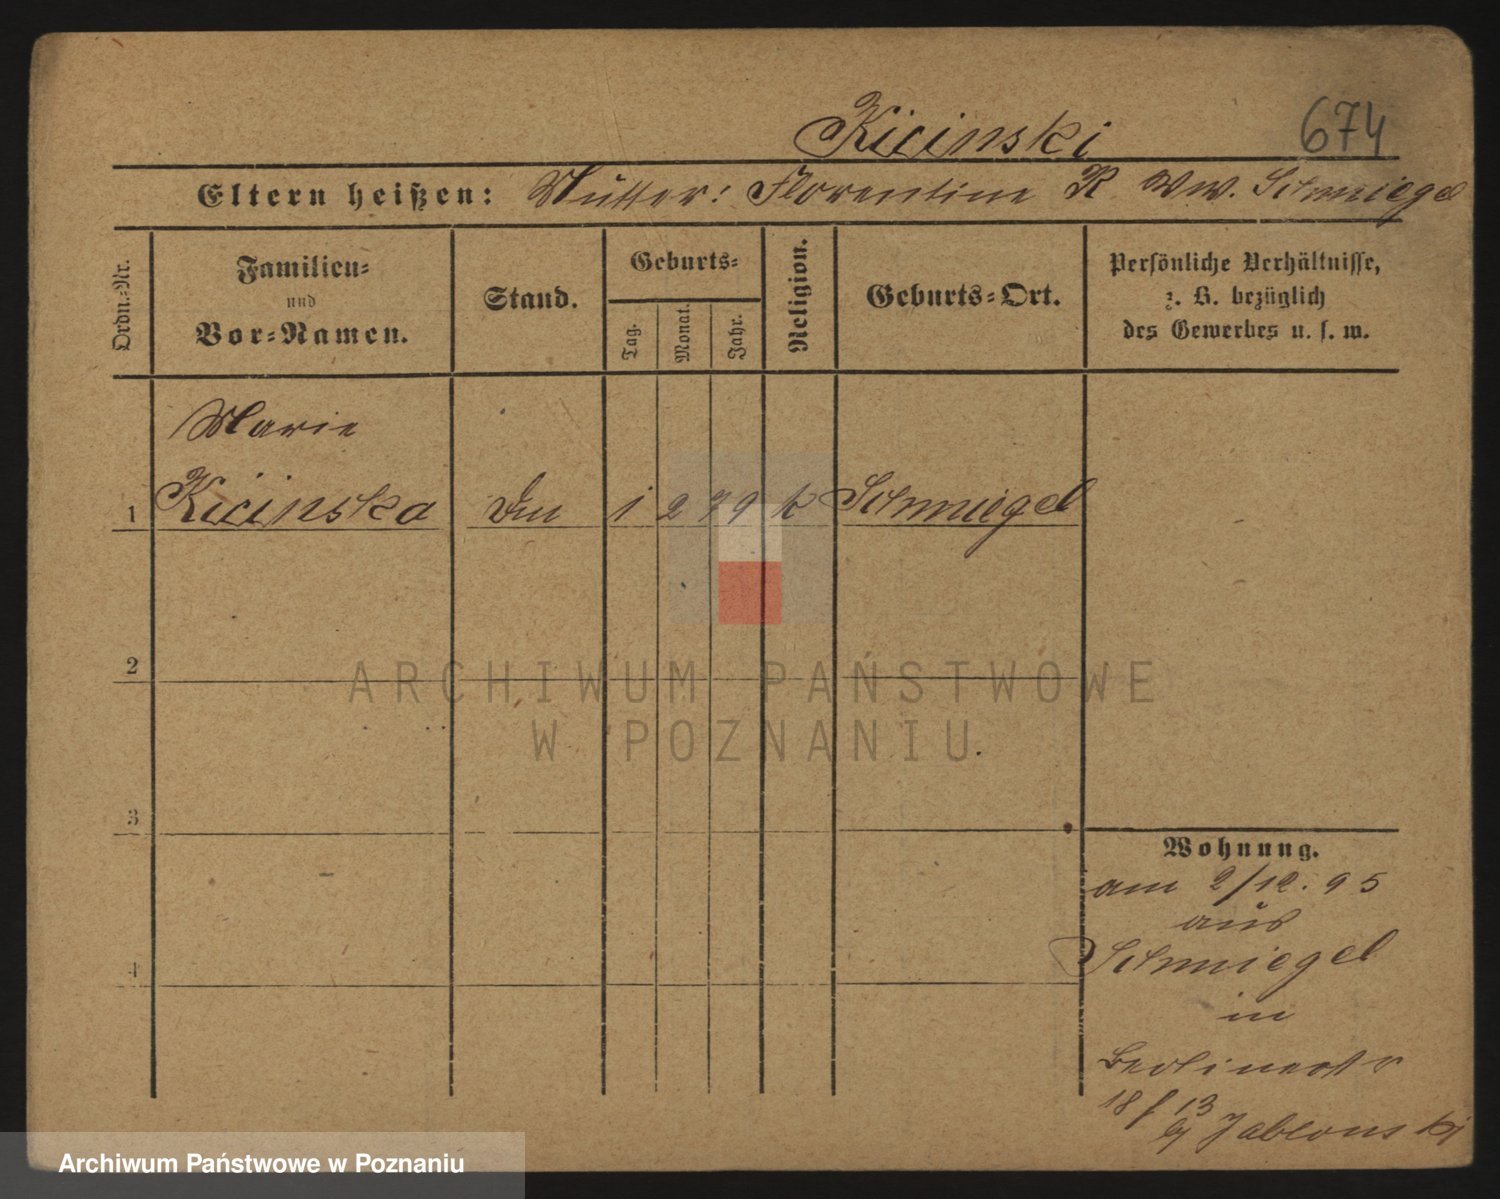 Kicinski 674
Eltern heißen: Mutter: Florentine K Ww. Schmiegel
Ordn.-Nr.
Familien-
und
Vor-Namen.
Stand.
Geburts-
Tag.
Monat.
Jahr.
Religion.
Geburts-Ort.
Persönliche Verhältnisse,
z. B. bezüglich
des Gewerbes u. s. w.
Marie
1 Kicinska 1 2 79 k Schmiegel
2
3
4
ARCHIWUM PAŃSTWOWE
W POZNANIU
Wohnung.
am 2/12. 95
aus
Schmiegel
in
Berlinerstr
18 13
Jablonski
Archiwum Państwowe w Poznaniu